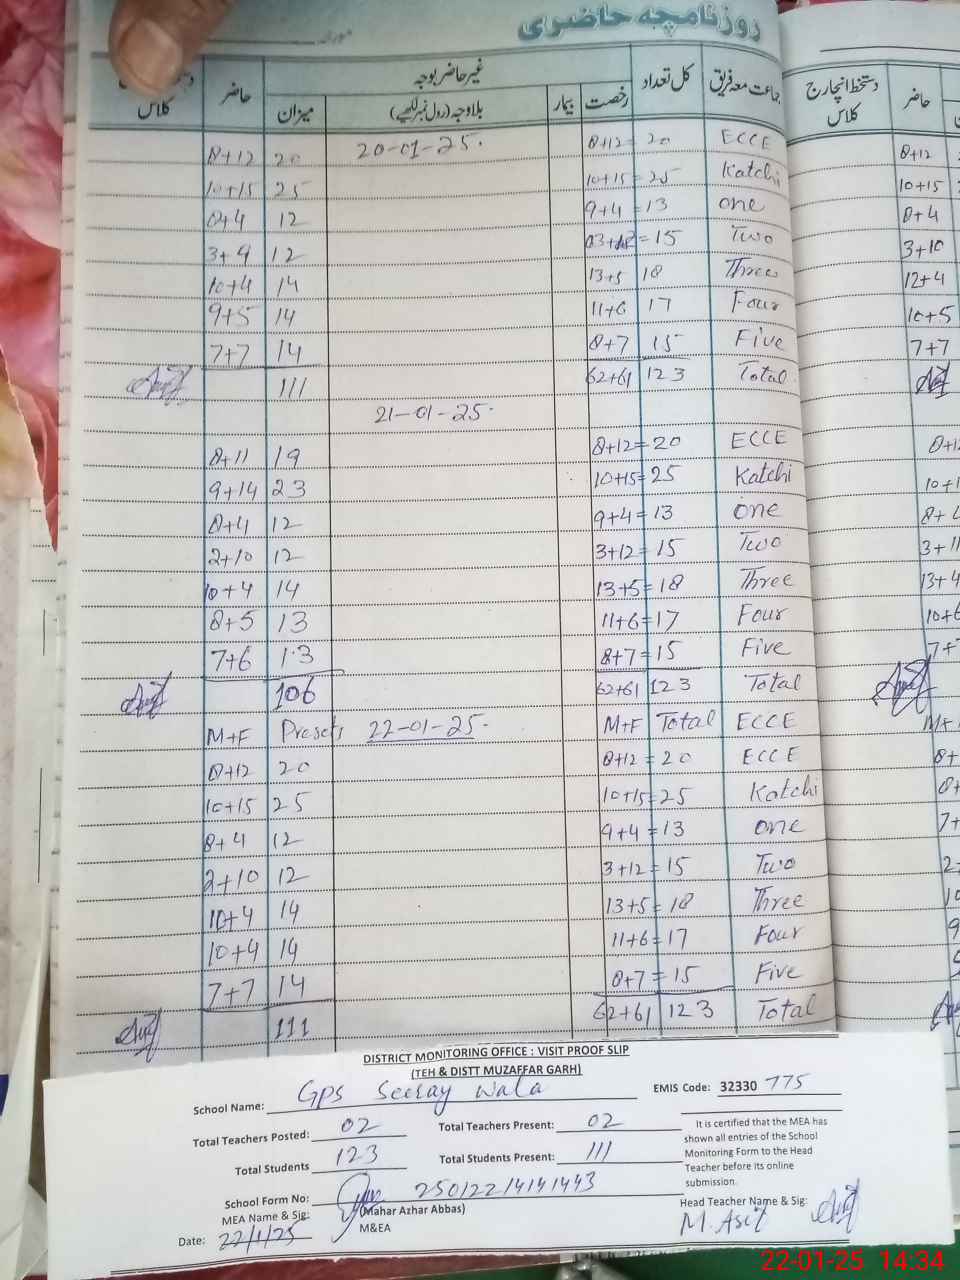 روزنامچہ حاضری
مورخہ
جماعت معہ فریق کل تعداد غیر حاضر بوجہ حاضر دستخط انچارج کلاس
رخصت بیمار بلاوجہ (رول نمبر لکھیے) میزان
دستخط انچارج کلاس حاضر
20-01-25.
8+12 20 8+12= 20 ECCE 8+12
10+15 25 10+15=25 Katchi 10+15
8+4 12 9+4 =13 one 8+4
3+9 12 =15 Two 3+10
10+4 14 13+5 18 Three 12+4
9+5 14 11+6 17 Four 10+5
7+7 14 8+7 15 Five 7+7
111 62+61 123 Total
21-01-25.
8+11 19 8+12=20 ECCE
9+14 23 10+15=25 Katchi
8+4 12 9+4=13 one
2+10 12 3+12=15 Two
10+4 14 13+5=18 Three 13+4
8+5 13 11+6=17 Four
7+6 13 8+7=15 Five
106 62+61 123 Total
M+F 22-01-25. M+F Total ECCE
8+12 20 8+12=20 ECCE
10+15 25 10+15=25 Katchi
8+4 12 9+4=13 one
2+10 12 3+12=15 Two
10+4 14 13+5=18 Three
10+4 14 11+6=17 Four
7+7 14 8+7=15 Five
111 62+61 123 Total
DISTRICT MONITORING OFFICE : VISIT PROOF SLIP
(TEH & DISTT MUZAFFAR GARH)
School Name: GPS Seeray Wala EMIS Code: 32330 775
Total Teachers Posted: 02 Total Teachers Present: 02
Total Students 123 Total Students Present: 111
It is certified that the MEA has
shown all entries of the School
Monitoring Form to the Head
Teacher before its online
submission.
School Form No: 25012214141443
MEA Name & Sig: (Mahar Azhar Abbas)
M&EA
Head Teacher Name & Sig:
M. Asif
Date: 22/1/25
22-01-25 14:34